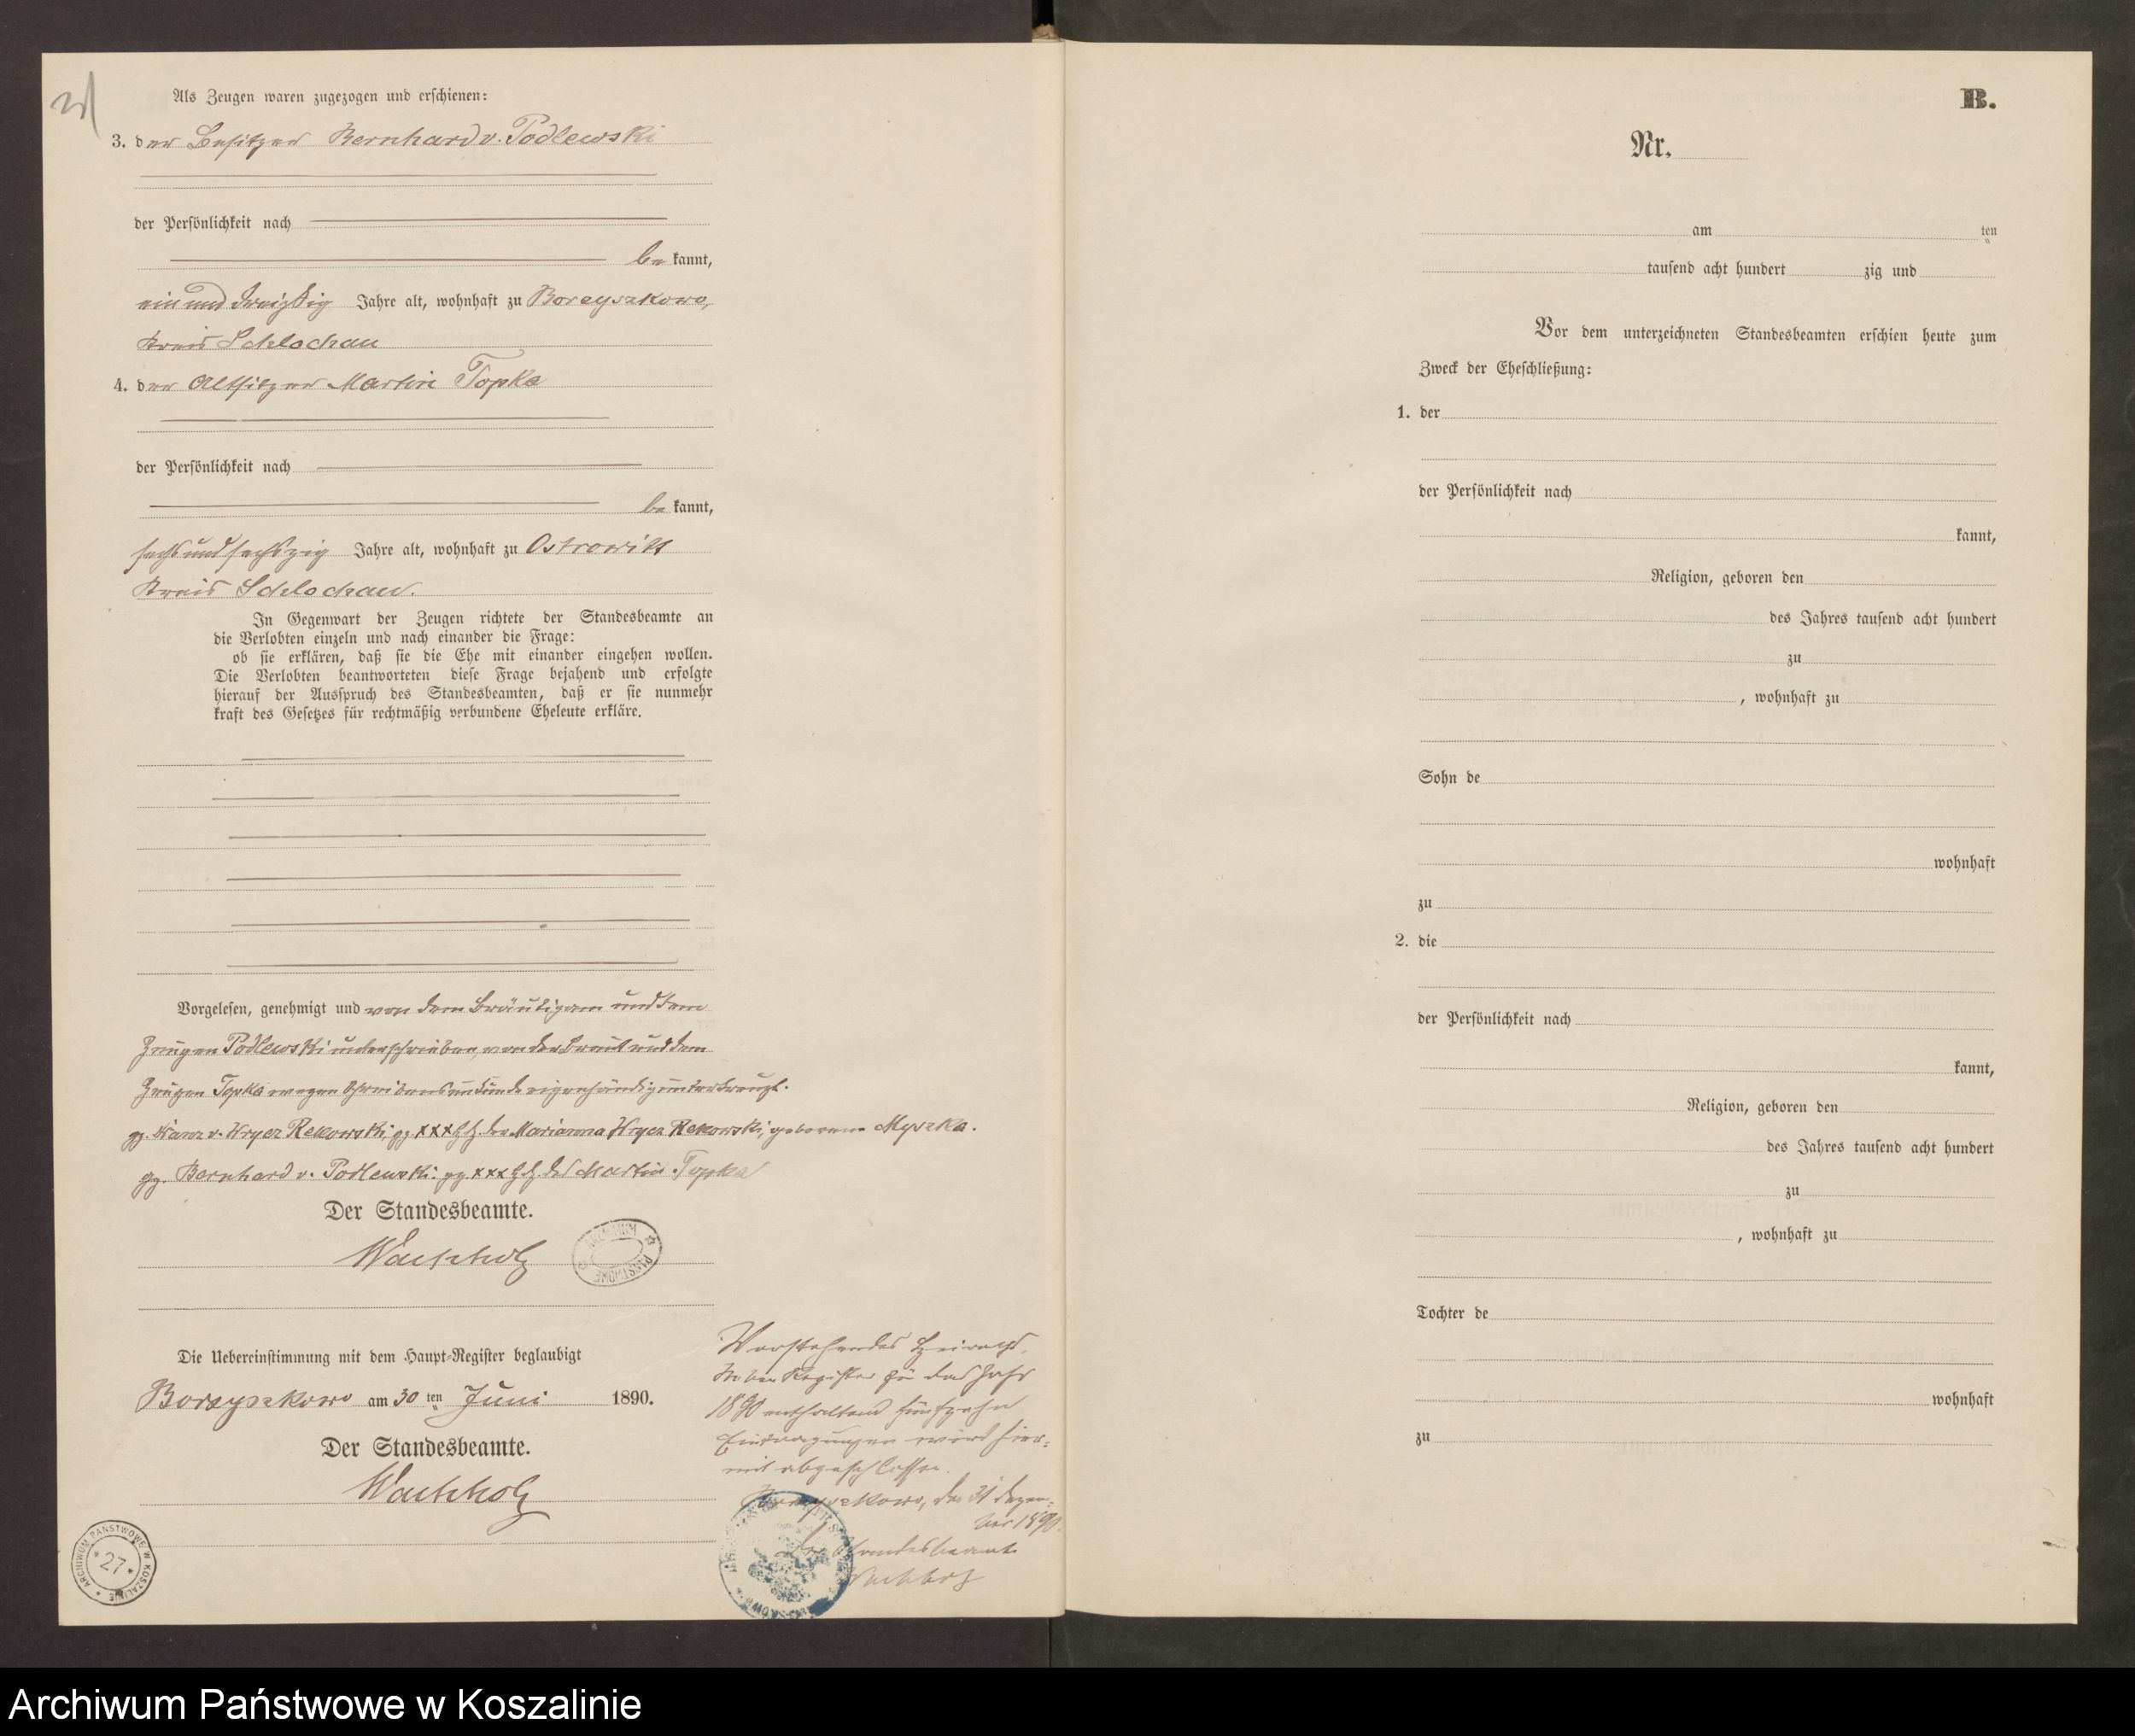 Als Zeugen waren zugezogen und erschienen:
3. der Besitzer Bernhard v. Podlewski
der Persönlichkeit nach
be kannt,
ein und dreißig Jahre alt, wohnhaft zu Borzyszkowo,
Kreis Schlochau
4. der Altsitzer Martin Topka
der Persönlichkeit nach
be kannt,
sechs und sechszig Jahre alt, wohnhaft zu Ostrowitt
Kreis Schlochau.
In Gegenwart der Zeugen richtete der Standesbeamte an
die Verlobten einzeln und nach einander die Frage:
ob sie erklären, daß sie die Ehe mit einander eingehen wollen.
Die Verlobten beantworteten diese Frage bejahend und erfolgte
hierauf der Ausspruch des Standesbeamten, daß er sie nunmehr
kraft des Gesetzes für rechtmäßig verbundene Eheleute erkläre.
Vorgelesen, genehmigt und von dem Bräutigam und dem
Zeugen Podlewski unterschrieben, von der Braut und dem
Zeugen Topka wegen Schreibensunkunde eigenhändig unterkreuzt.
gz. v. Wrycz Rekowski, gz. xxx Hz. der Marianna Wrycz Rekowski, geborene Myszka.
gz. Bernhard v. Podlewski. gz. xxx Hz. des Martin Topka
Der Standesbeamte.
Wachholz
Die Uebereinstimmung mit dem Haupt-Register beglaubigt
Borzyszkowo am 30 ten Juni 1890.
Der Standesbeamte.
Wachholz
Vorstehendes Heiraths-
Neben Register für das Jahr
1890 enthaltend fünfzehn
Eintragungen wird hier-
mit abgeschlossen.
Borzyszkowo, den 31 Dezem-
ber 1890.
Der Standesbeamte
Wachholz
ARCHIWUM PAŃSTWOWE W KOSZALINIE
27
B.
Nr.
am ten
tausend acht hundert zig und
Vor dem unterzeichneten Standesbeamten erschien heute zum
Zweck der Eheschließung:
1. der
der Persönlichkeit nach
kannt,
Religion, geboren den
des Jahres tausend acht hundert
zu
, wohnhaft zu
Sohn de
wohnhaft
zu
2. die
der Persönlichkeit nach
kannt,
Religion, geboren den
des Jahres tausend acht hundert
zu
, wohnhaft zu
Tochter de
wohnhaft
zu
Archiwum Państwowe w Koszalinie